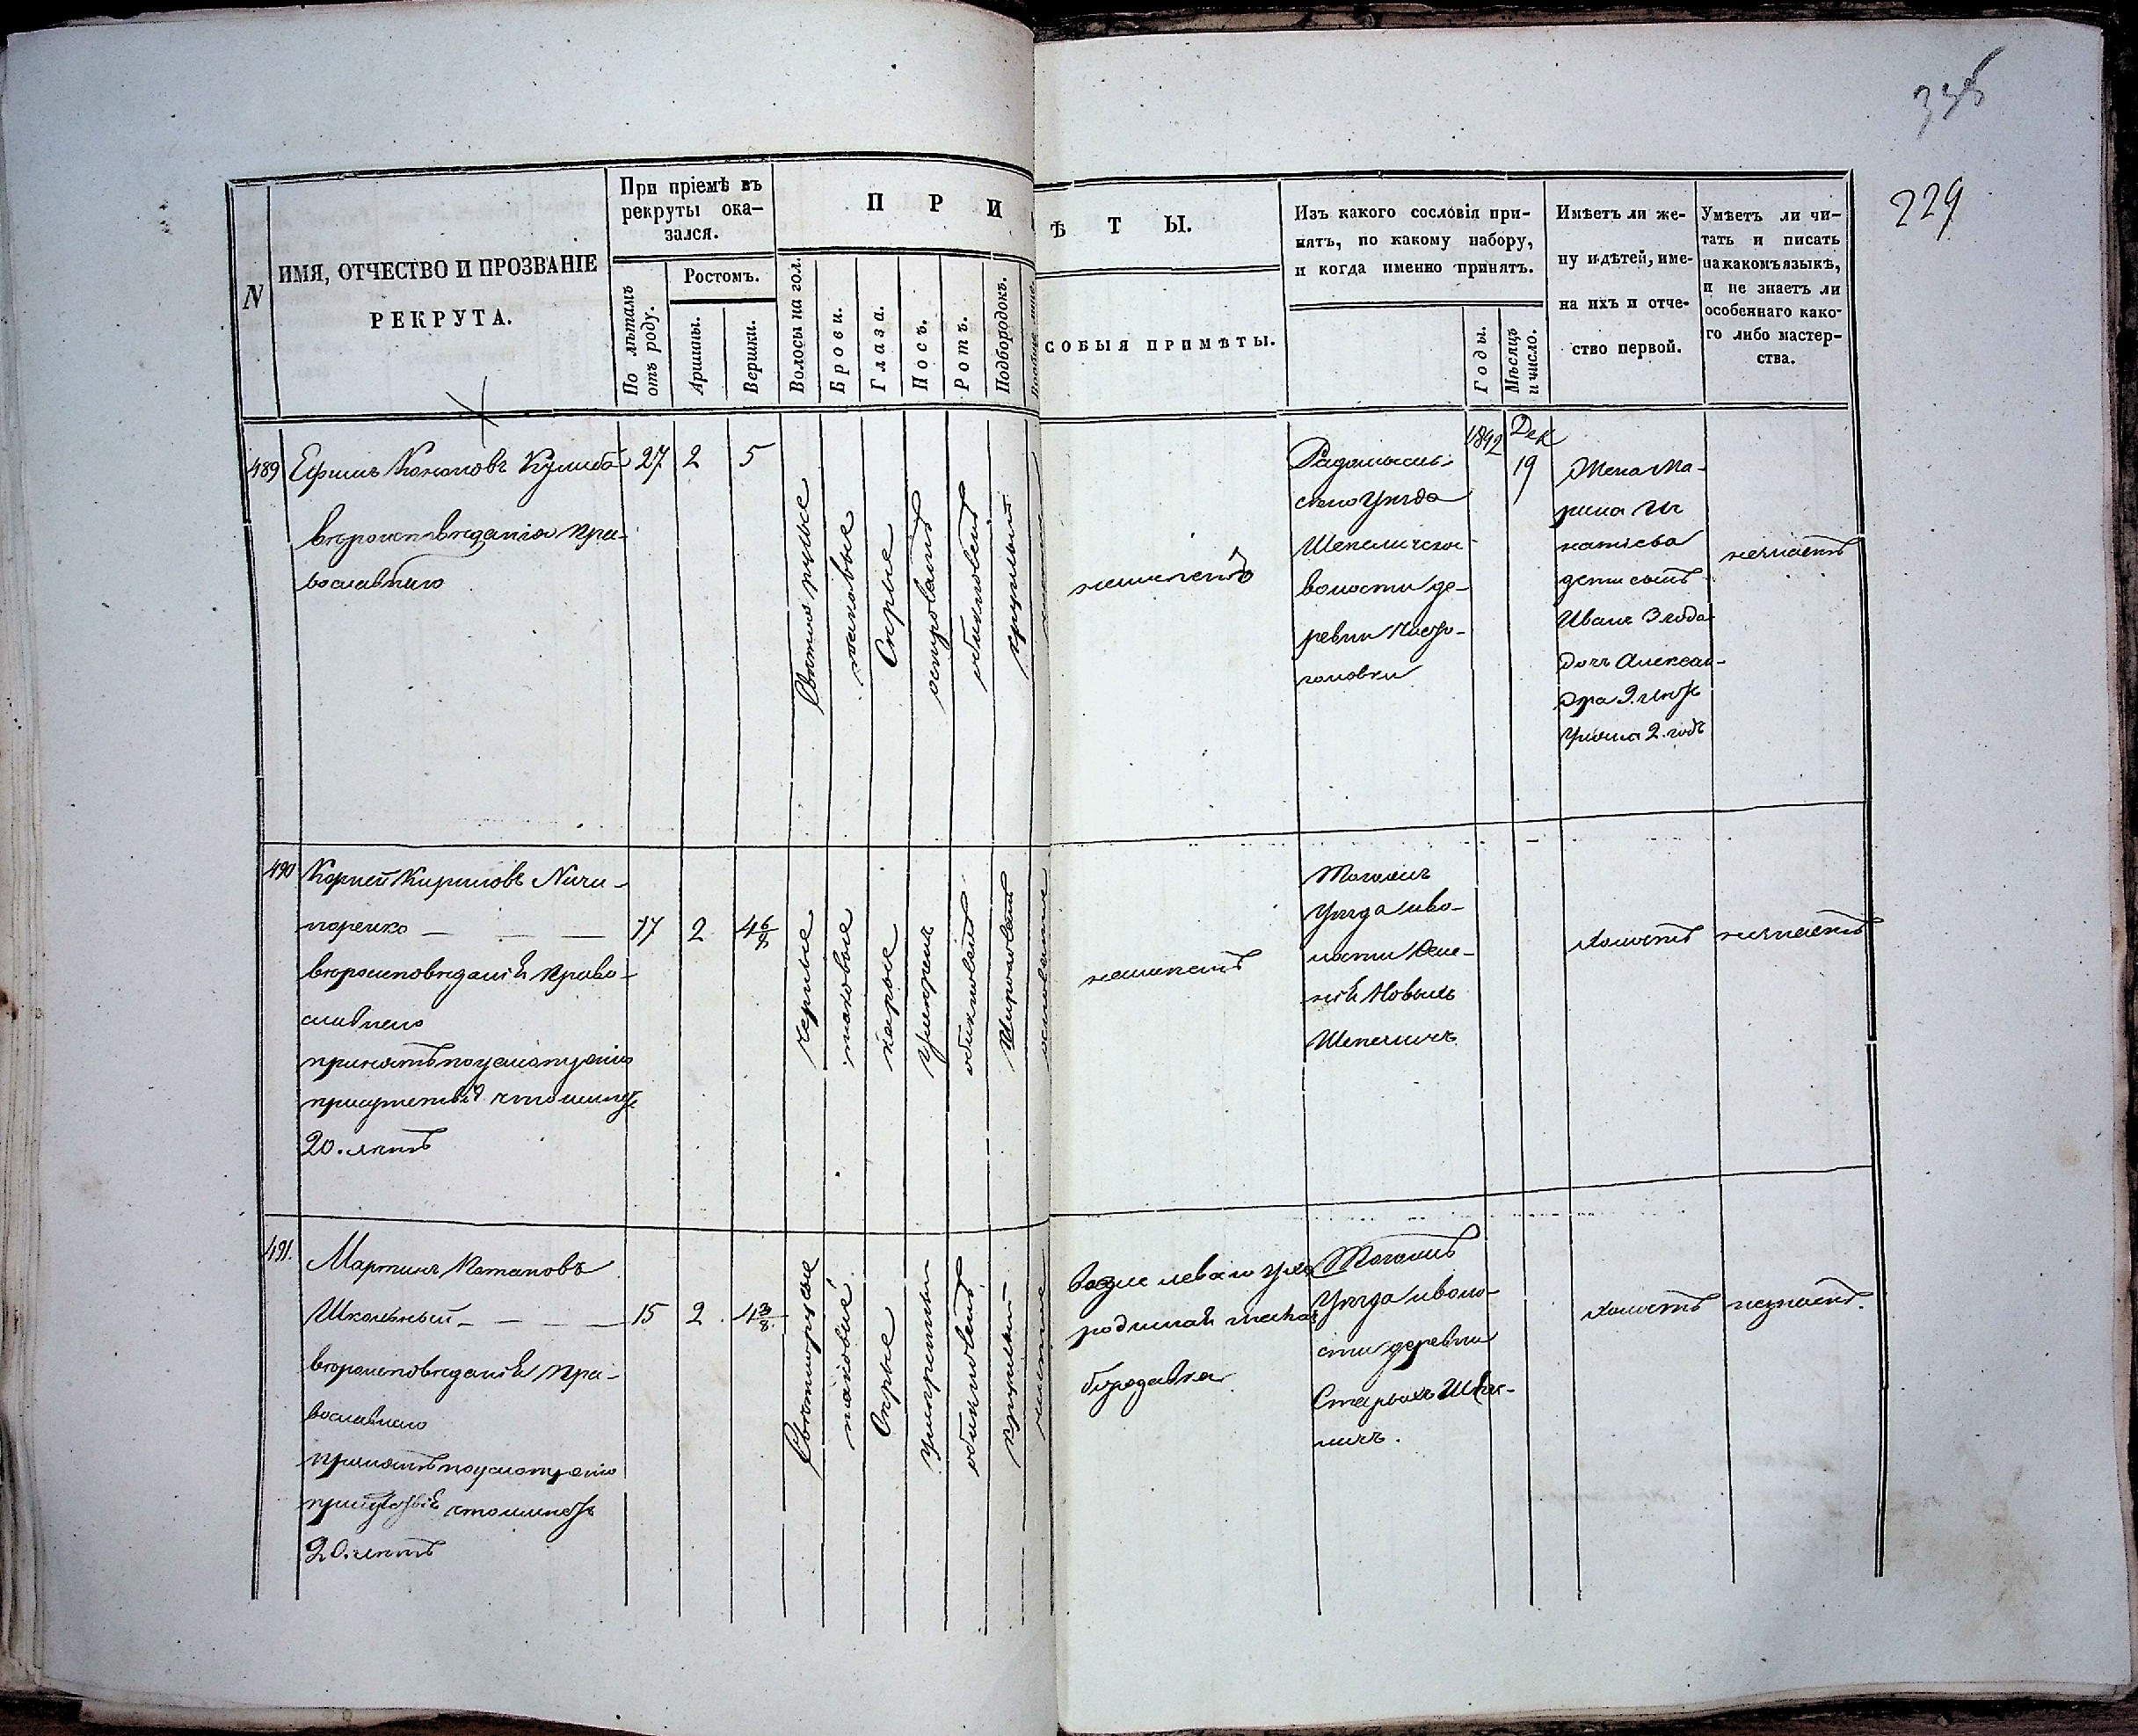 229
N
ИМЯ, ОТЧЕСТВО И ПРОЗВАНІЕ
РЕКРУТА.
При пріемѣ въ
рекруты ока-
зался.
По лѣтамъ
отъ роду.
Ростомъ.
Аршины.
Вершки.
П Р И
Волосы на гол.
Брови.
Глаза.
Носъ.
Ротъ.
Подбородокъ.
Ѣ Т Ы.
СОБЫЯ ПРИМѢТЫ.
Изъ какого сословія при-
нятъ, по какому набору,
и когда именно принятъ.
Годы.
Мѣсяцъ
и число.
Имѣетъ ли же-
ну и дѣтей, име-
на ихъ и отче-
ство первой.
Умѣетъ ли чи-
тать и писать
на какомъ языкѣ,
и не знаетъ ли
особеннаго како-
го либо мастер-
ства.
489
Ефимъ Кононовъ
вѣроисповѣданія Пра-
вославнаго
27
2
5
Свѣтлорусые
таковые
Сѣрые
островатый
обикновенный
круглый
неимѣетъ
Радомысль-
скаго Уѣзда
Шепеличской
волости де-
ревни
1842
Дек
19
Жена Ма-
рина Иг
натіева
дети сынъ
Иванъ 3 года
дочь Алексан-
дра
2 годъ
незнаетъ
490
Корней Кириловъ Ничи-
поренко
вѣроисповѣданія Право-
славнаго
принятъ по усмотрѣнію
присутствія что имѣетъ
20. лѣтъ
17
2
4 6/8
черные
таковые
карые
умѣренный
обикновенный
Широковатый
неимѣетъ
Тогожъ
Уѣзда и во-
лости
Новыхъ
Шепеличъ
холостъ
незнаетъ
491.
Мартинъ Потаповъ
Школьный
вѣроисповѣданія Пра-
вославнаго
принятъ по усмотрѣнію
присутствія что имѣетъ
20. лѣтъ
15
2
4 3/8
Свѣтлорусые
таковые
Сѣрые
Умѣренный
обикновенный
Круглый
чистое
возле леваго уха
родимая
бородавка
Тогожъ
Уѣзда и воло-
сти деревни
Старыхъ Шепе-
личъ.
холостъ
незнаетъ.